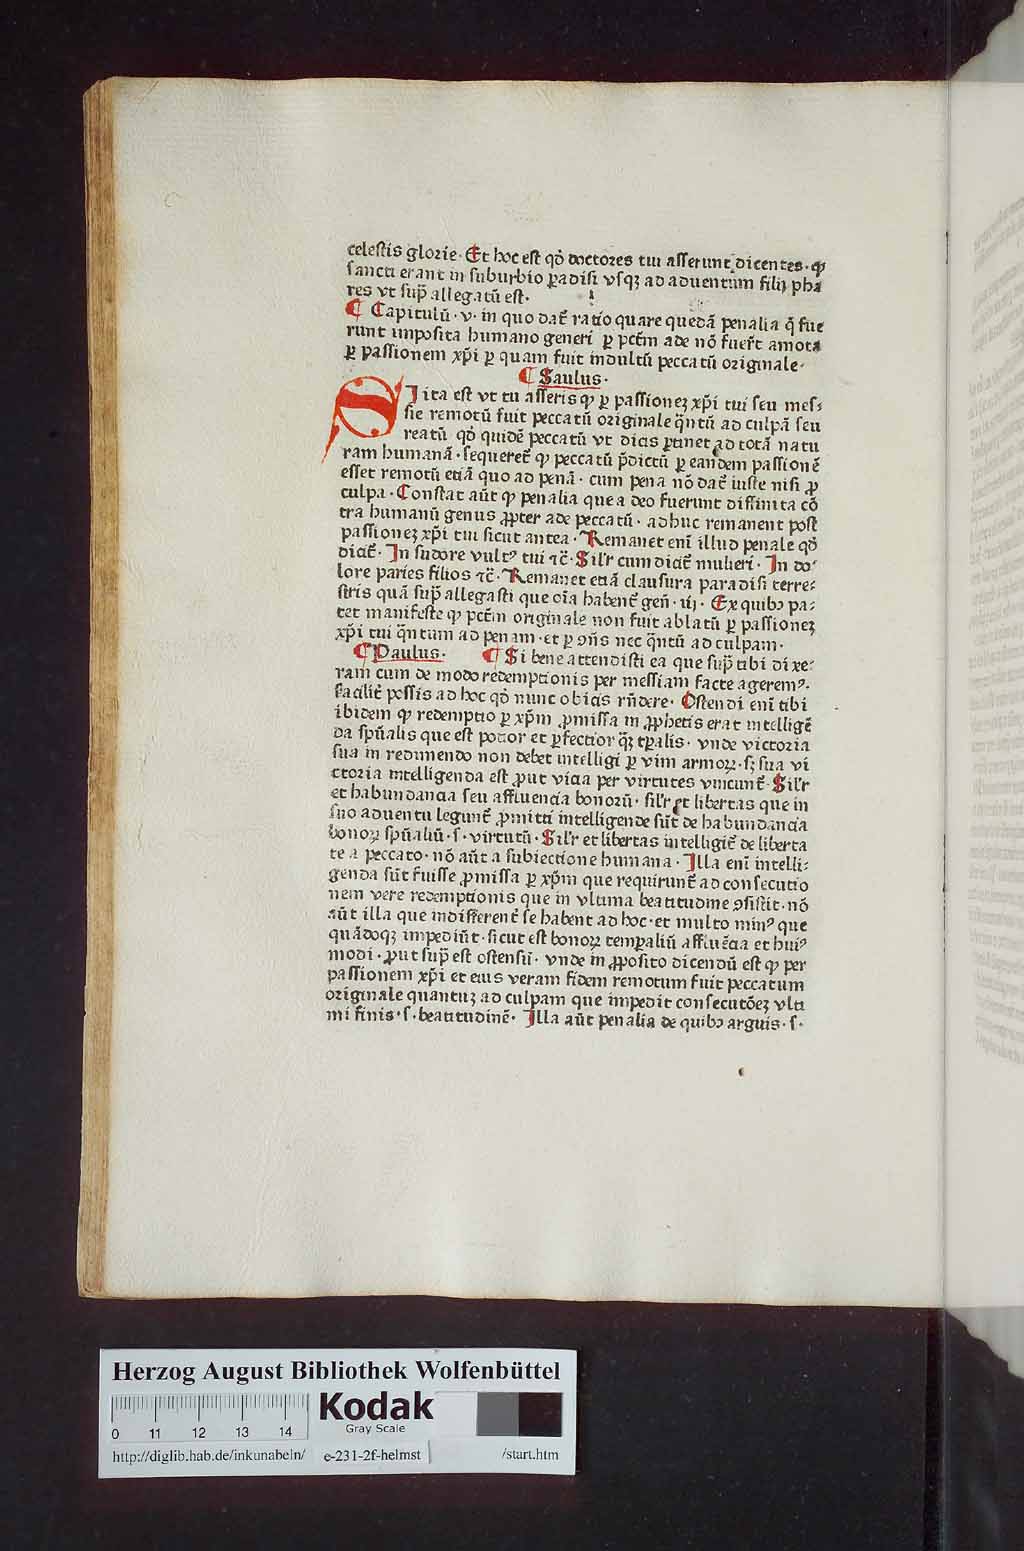 celestis glorie· Et hoc est qd̓ doctores tui asserunt dicentes· ꝙ
sancti erant in suburbio ꝑadisi vsqꝫ ad aduentum filij pha
res vt sup̄ allegatū est·
¶ Capitulū· v· in quo dat᷑ ratio quare quedā penalia q̄ fue
runt imposita humano generi ꝑ pctm̄ ade nō fuer̄t amota
ꝑ passionem xp̄i ꝑ quam fuit indultū peccatū originale·
¶ Saulus·
SI ita est vt tu asseris ꝙ ꝑ passioneꝫ xp̄i tui seu mes⸗
sie remotū fuit peccatū originale q̄ntū ad culpā seu
reatū qd̓ quidē peccatū vt dicis ꝑtinet ad totā natu
ram humanā· sequeret᷑ ꝙ peccatū p̄dictū ꝑ eandem passionē
esset remotū etiā quo ad penā· cum pena nō dat᷑ iuste nisi ꝓ
culpa· Constat aūt ꝙ penalia que a deo fuerunt diffinita cō
tra humanū genus ꝓpter ade peccatū· adhuc remanent post
passioneꝫ xp̄i tui sicut antea· Remanet eni̅ illud penale qd̓
dicit᷑· In sudore vultꝰ tui ⁊c̄· Sil̓r cum dicit᷑ mulieri· In do⸗
lore paries filios ⁊c̄· Remanet etiā clausura paradisi terre⸗
stris quā sup̄ allegasti que oīa habent᷑ gen̄· iij· Ex quibꝰ pa⸗
tet manifeste ꝙ pctm̄ originale non fuit ablatū ꝑ passioneꝫ
xp̄i tui q̄ntum ad penam· et ꝑ ꝯn̄s nec q̄ntū ad culpam·
¶ Paulus· ¶ Si bene attendisti ea que sup̄ tibi dixe⸗
ram cum de modo redemptionis per messiam facte ageremꝰ·
facilit᷑ possis ad hoc qd̓ nunc obicis rn̄dere· Ostendi eni̅ tibi
ibidem ꝙ redemptio ꝑ xp̄m ꝓmissa in ꝓphetis erat intelligē
da spūalis que est potior et ꝑfectior q̄ꝫ tꝑalis· vnde victoria
sua in redimendo non debet intelligi ꝑ vim armoꝝ· sꝫ sua vi
ctoria intelligenda est ꝓut vicia per virtutes vincunt᷑· Sil̓r
et habundancia seu affluencia bonorū· sil̓r et libertas que in
suo aduentu legunt᷑ ꝓmitti intelligende sūt de habundancia
bonoꝝ spūaliū· s· virtutū· Sil̓r et libertas intelligit᷑ de liberta
te a peccato· nō aūt a subiectione humana· Illa eni̅ intelli⸗
genda sūt fuisse ꝓmissa ꝑ xp̄m que requirunt᷑ ad consecutio
nem vere redemptionis que in vltima beatitudine ꝯsistit· nō
aūt illa que indifferent᷑ se habent ad hoc· et multo minꝰ que
quādoqꝫ impediūt· sicut est bonoꝝ temꝑaliū affluēcia et huiꝰ
modi· ꝓut sup̄ est ostensū· vnde in ꝓposito dicendū est ꝙ per
passionem xp̄i et eius veram fidem remotum fuit peccatum
originale quantuꝫ ad culpam que impedit consecutōeꝫ vlti
mi finis· s· beatitudinē· Illa aūt penalia de quibꝰ arguis· s·
Herzog August Bibliothek Wolfenbüttel
0 11 12 13 14
Kodak
Gray Scale
http://diglib.hab.de/inkunabeln/ e-231-2f-helmst /start.htm